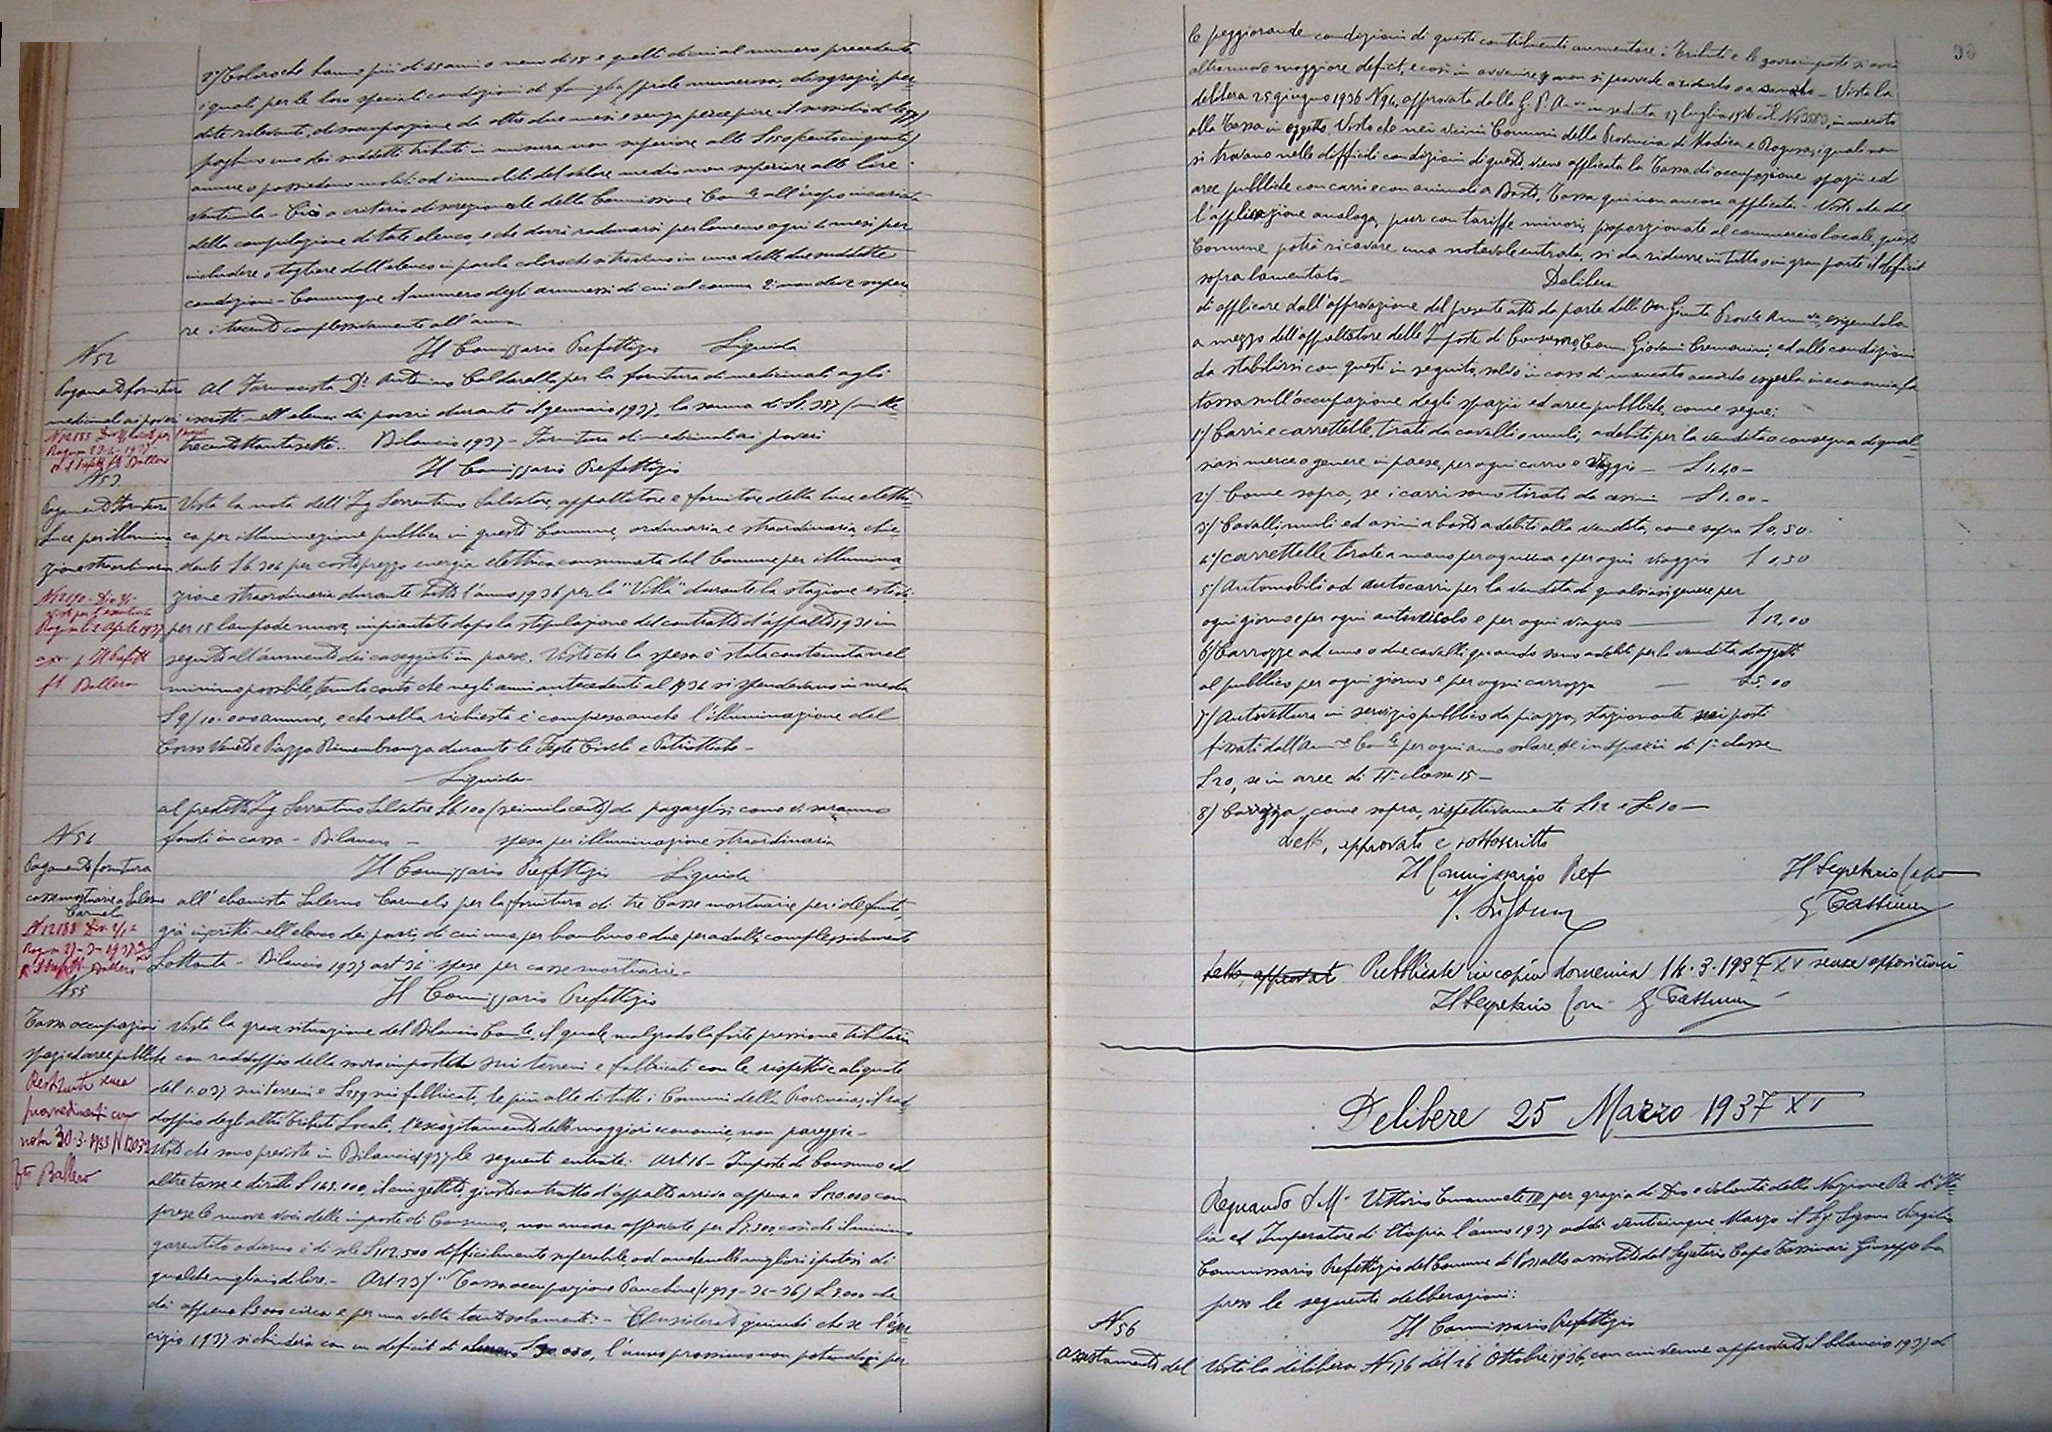 2°/ Coloro che hanno più di 65 anni o meno di 18 e quelli di cui al numero precedente
i quali per le loro speciali condizioni di famiglia, prole numerosa, disgrazie, per-
dite rilevanti, disoccupazione da oltre due mesi e senza percepire il sussidio di legge
paghino uno dei suddetti tributi in misura non superiore alle L 150 (centocinquanta)
annue o possiedano mobili od immobili del valore medio non superiore alle lire
ventimila - Ciò a criterio discrezionale della Commissione Com.le all'uopo incaricata
della compilazione di tale elenco, e che dovrà radunarsi per lo meno ogni 6 mesi per
includere o togliere dall'elenco in parola coloro che si trovino in una delle due suddette
condizioni - Comunque il numero degli ammessi di cui al comma 2° non deve supera
re i trecento complessivamente all'anno
N 52
Il Commissario Prefettizio Liquida
Pagamento fornitura
medicinali ai poveri
Al Farmacista Dr Antonino Caldarella per la fornitura di medicinali agli
iscritti all'elenco dei poveri durante il gennaio 1937, la somma di L 1.387 (mille
trecentottantasette.. Bilancio 1937 - Fornitura di medicinali ai poveri
N 12185
Ragusa 27-3-1937
Ballero
N 53
Il Commissario Prefettizio
Pagamento fornitura
luce per illumina
zione straordinaria
Vista la nota dell'Ing Sorrentino Salvatore, appaltatore e fornitore della luce elettri=
ca per illuminazione pubblica in questo Comune, ordinaria e straordinaria, chie
dente L 6.306 per costo prezzo energia elettrica consumata dal Comune per illumina
zione straordinaria durante tutto l'anno 1936 per la "Villa" durante la stagione estiva
per 18 lampade nuove, impiantate dopo la stipulazione del contratto d'appalto 1931 in
seguito all'aumento dei caseggiati in paese. Visto che la spesa è stata contenuta nel
minimo possibile, tenuto conto che negli anni antecedenti al 1936 si spendevano in media
L 9/10.000 annue, e che nella richiesta è compreso anche l'illuminazione del
Corso Veneto e Piazza Rimembranza durante le Feste Civili e Patriottiche -
N 12190 - Div 2/1-
Ragusa li 2 Aprile 1937
p. Il Prefetto
ft Ballero
Liquida
al predetto Ing Sorrentino Salvatore L 6.100 (seimilacento) da pagarglisi come vi saranno
fondi in cassa - Bilancio - spesa per illuminazione straordinaria
N 54
Il Commissario Prefettizio Liquida
Pagamento fornitura
casse mortuarie a Salerno
Carmelo
all'ebanista Salerno Carmelo per la fornitura di tre Casse mortuarie per i defunti,
già iscritti nell'elenco dei poveri, di cui una per bambino e due per adulti, complessivamente
L ottanta - Bilancio 1937 art 36 - spese per casse mortuarie -
N 12188 Div 2/1a
Ragusa 27-3-1937
Ballero
N 55
Il Commissario Prefettizio
Tassa occupazioni
spazi ed aree pubbliche
Vista la grave situazione del Bilancio Com.le, il quale, malgrado la forte pressione tributaria
con raddoppio della sovraimposta sui terreni e fabbricati con le rispettive aliquote
del 1.037 sui terreni e sui fabbricati, le più alte di tutti i Comuni della Provincia, il rad-
doppio degli altri Tributi Locali, l'escogitamento delle maggiori economie, non pareggia -
Visto che sono previste in Bilancio 1937 le seguenti entrate: Art 16 - Imposte di Consumo ed
altre tasse e diritti L 169.000, il cui gettito giusto contratto d'appalto arriva appena a L 120.000 com
prese le nuove voci delle imposte di Consumo, non ancora approvate per L 7.500, così che il minimo
garentito odierno è di sole L 112.500 difficilmente superabile, od anche nelle migliori ipotesi di
qualche migliaio di lire - Art 23/ "Tassa occupazione Panchine (1929-36-36) L 9.000 che
dà appena L 3000 circa e per una volta tanto solamente - Considerato quindi che se l'eser
cizio 1937 si chiuderà con un deficit di almeno L 50.000, l'anno prossimo non potendosi per
Restituita senza
provvedimenti con
nota 30-3-1938 N 12032
fto Ballero
le peggiorande condizioni di questi contribuenti aumentare i Tributi e le sovraimposte si avrà
altro nuovo maggiore deficit, e così in avvenire, se non si provvede a ridurlo o a sanarlo - Vista la
delibera 25 giugno 1936 N 94, approvata dalla G. P. A. in seduta 17 luglio 1936 col N 13583, in merito
alla Tassa in oggetto. Visto che nei vicini Comuni della Provincia di Modica e Ragusa, i quali non
si trovano nelle difficili condizioni di questo, viene applicata la Tassa di occupazione spazii ed
aree pubbliche con carri e con animali a Basto, Tassa qui non ancora applicata - Visto che dal
l'applicazione analoga, pur con tariffe minori, proporzionate al commercio locale, questo
Comune potrà ricavare una notevole entrata, sì da ridurre in tutto o in gran parte il deficit
sopra lamentato - Delibera
di applicare dall'approvazione del presente atto da parte della On. Giunta Prov.le Amm.va, esigendola
a mezzo dell'appaltatore delle Imposte di Consumo, Comm Giovanni Cremonini, ed alle condizioni
da stabilirsi con questi in seguito, salvo in caso di mancato accordo esigerla in economia, la
tassa sull'occupazione degli spazii ed aree pubbliche, come segue:
1°/ Carri e carrettelle, tirati da cavalli o muli, adebiti per la vendita o consegna di qual=
siasi merce o genere in paese, per ogni carro e viaggio - L 1.40 -
2°/ Come sopra, se i carri sono tirati da asini L 1.00 -
3°/ Cavalli, muli ed asini a basto adebiti alla vendita, come sopra L 0.50.
4°/ carrettelle tirate a mano per ognuna e per ogni viaggio L 0.50
5°/ Automobili od autocarri per la vendita di qualsiasi genere per
ogni giorno e per ogni autoveicolo e per ogni viaggio L 12,00
6°/ Carrozze ad uno o due cavalli quando sono adebiti per la vendita di oggetti
al pubblico per ogni giorno e per ogni carrozza - L 5,00
7°/ Autovettura in servizio pubblico da piazza, stazionante nei posti
fissati dall'Amm.ne Com.le per ogni anno solare, se in spazii di 1a classe
L 20, se in aree di IIa classe 15 -
8°/ Carrozza, come sopra, rispettivamente L 12 e L 10 -
Letto, approvato e sottoscritto
Il Commissario Pref Il Segretario Capo
G Tassinari
Letto, approvato Pubblicata in copia domenica 14.3.1937 XV senza opposizioni
Il Segretario Com. G Tassinari
Delibere 25 Marzo 1937 XV
Regnando S. M. Vittorio Emanuele III per grazia di Dio e volontà della Nazione Re d'Ita
lia ed Imperatore di Etiopia l'anno 1937 addì venticinque Marzo il Sig Virgilio
Commissario Prefettizio del Comune di Pozzallo assistito dal Segretario Capo Tassinari Giuseppe ha
preso le seguenti deliberazioni:
N 56
Il Commissario Prefettizio
Assestamento del
Vista la delibera N 176 del 26 Ottobre 1936, con cui venne approvato il bilancio 1937 d